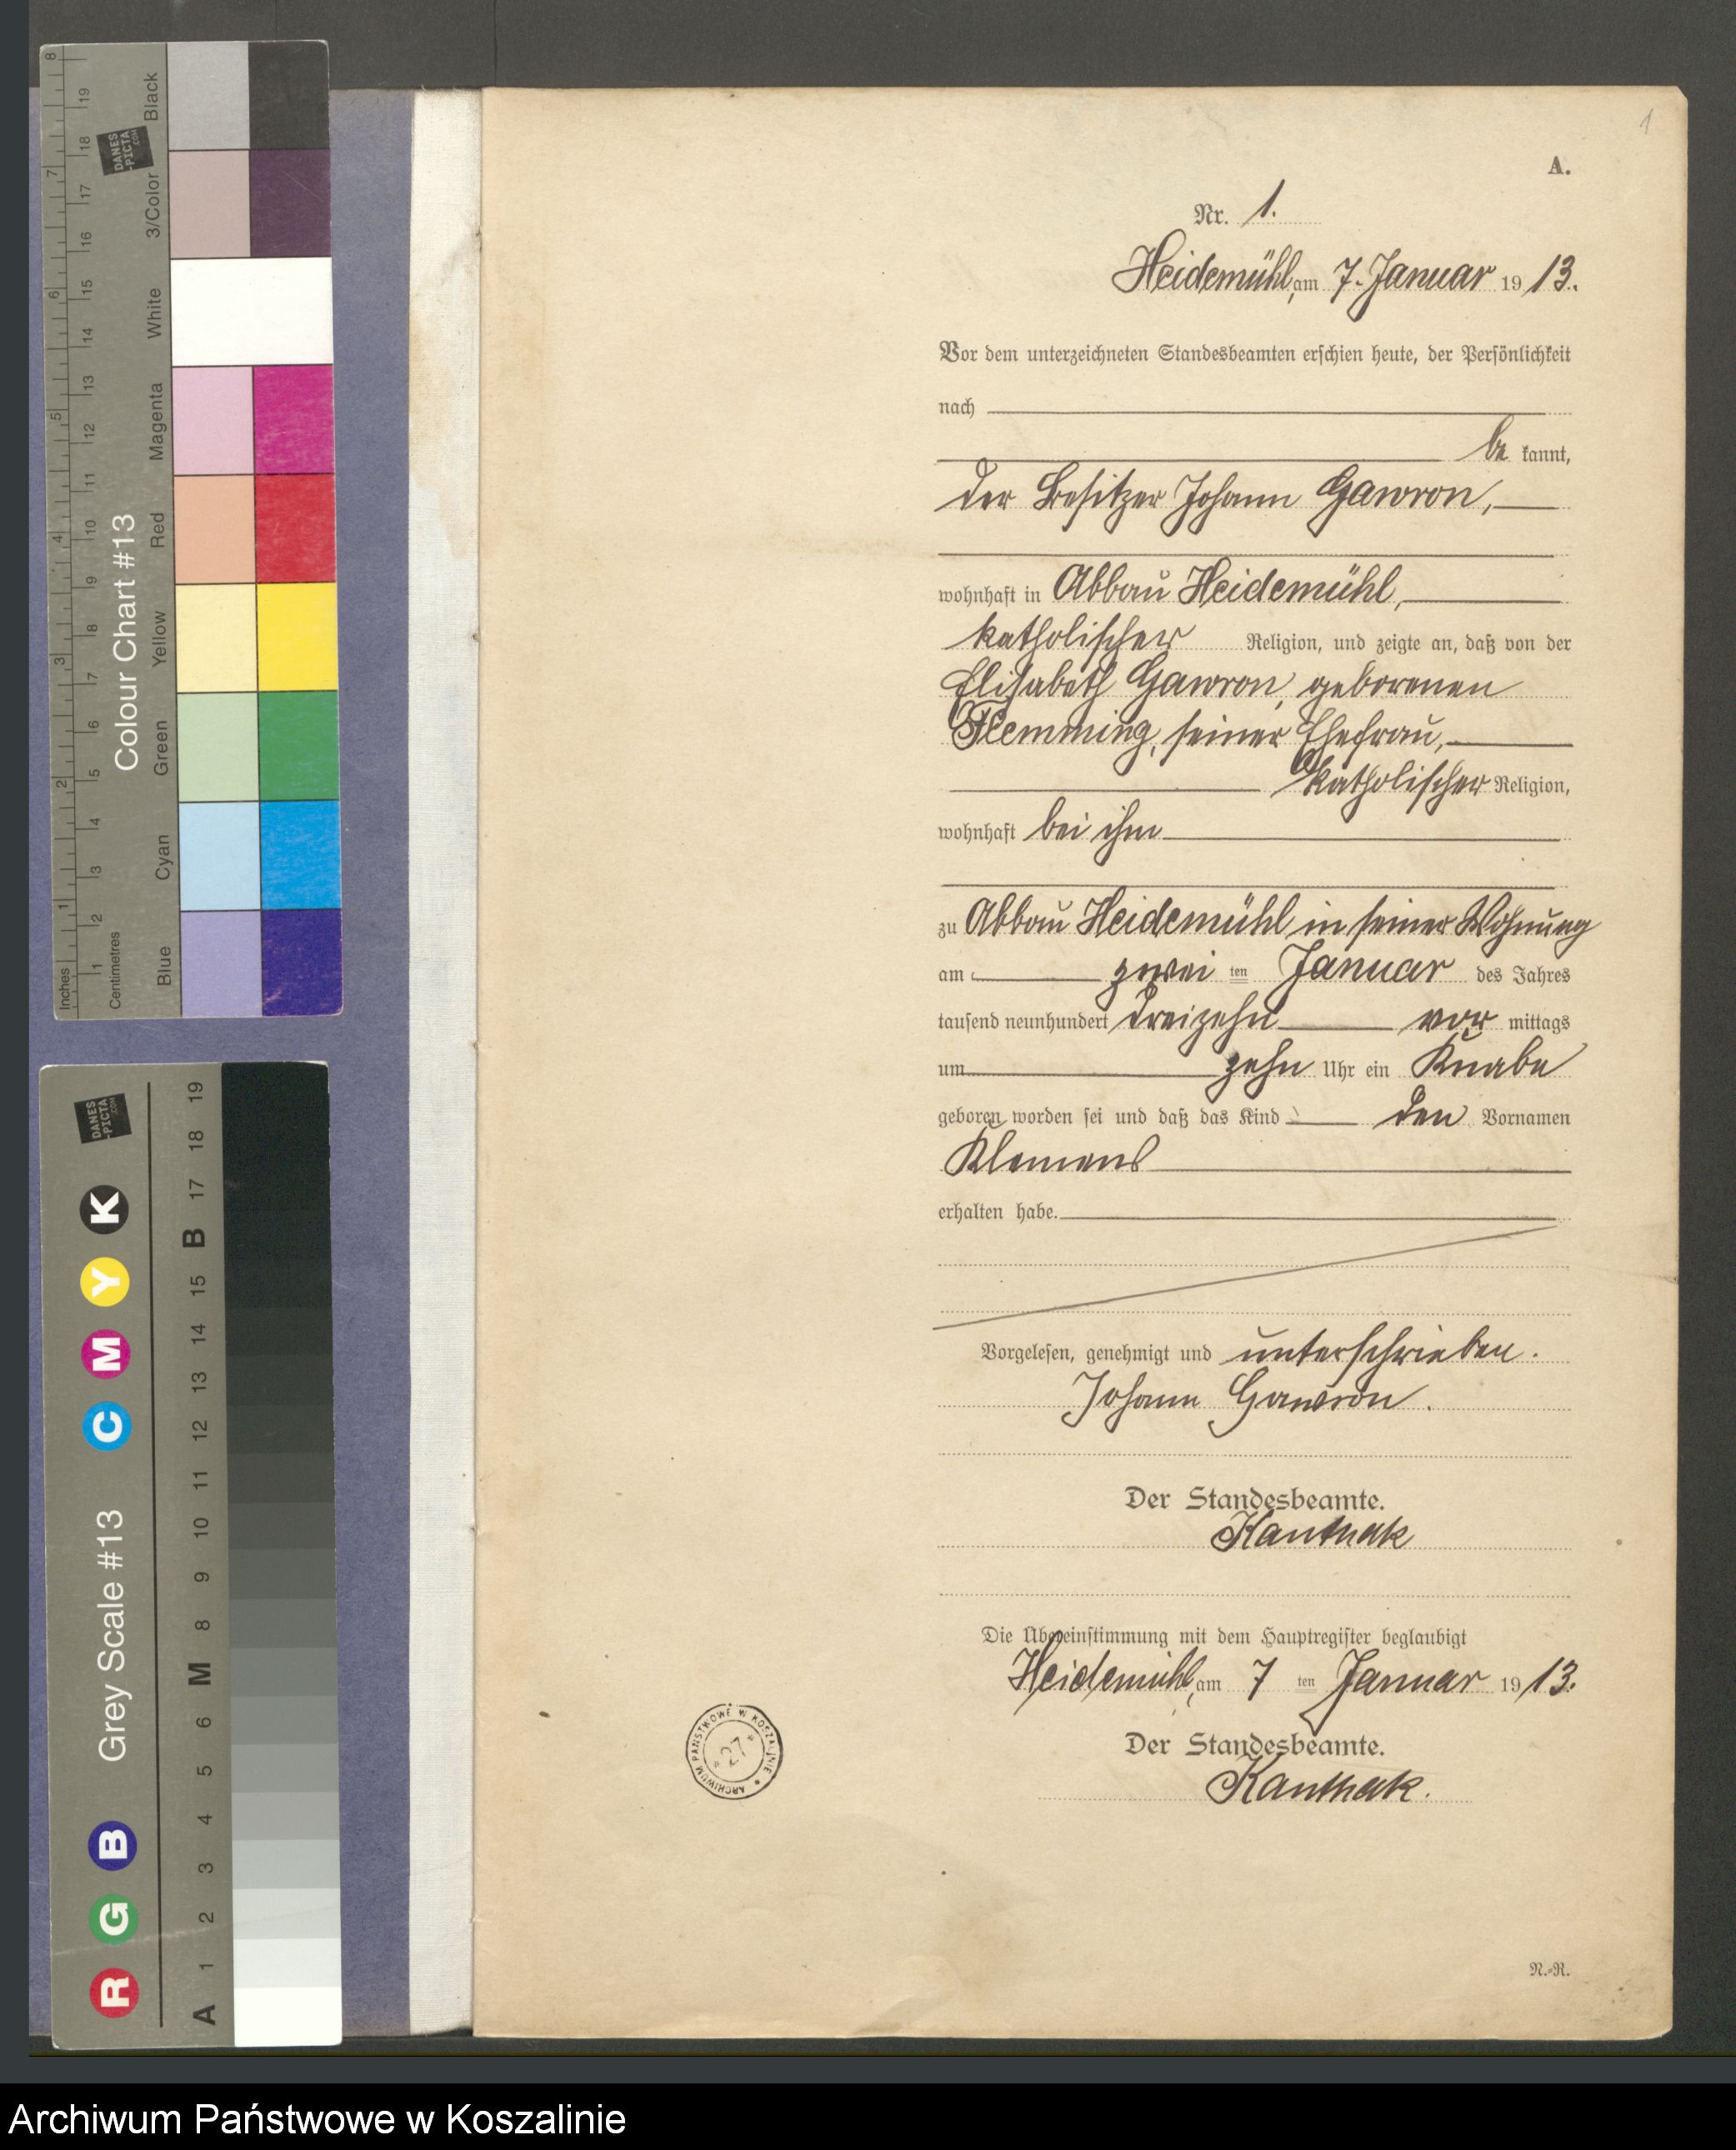 1
A.
Nr. 1.
Heidemühl, am 7. Januar 1913.
Vor dem unterzeichneten Standesbeamten erschien heute, der Persönlichkeit
nach
be kannt,
der Besitzer Johann Gawron,
wohnhaft in Abbau Heidemühl,
katholischer Religion, und zeigte an, daß von der
Elisabeth Gawron, geborenen
Flemming, seiner Ehefrau,
katholischer Religion,
wohnhaft bei ihm
zu Abbau Heidemühl in seiner Wohnung
am zwei ten Januar des Jahres
tausend neunhundert dreizehn vor mittags
um zehn Uhr ein Knabe
geboren worden sei und daß das Kind den Vornamen
Klemens
erhalten habe.
Vorgelesen, genehmigt und unterschrieben.
Johann Gawron.
Der Standesbeamte.
Kanthak
Die Übereinstimmung mit dem Hauptregister beglaubigt
Heidemühl, am 7 ten Januar 1913.
Der Standesbeamte.
Kanthak.
N.-R.
ARCHIWUM PAŃSTWOWE W KOSZALINIE
*27*
8 7 6 5 4 3 2 1 Inches
19 18 17 16 15 14 13 12 11 10 9 8 7 6 5 4 3 2 1 Centimetres
DANES
-PICTA
.COM
Colour Chart #13
Blue Cyan Green Yellow Red Magenta White 3/Color Black
DANES
-PICTA
.COM
R G B Grey Scale #13 C M Y K
A 1 2 3 4 5 6 M 8 9 10 11 12 13 14 15 B 17 18 19
Archiwum Państwowe w Koszalinie